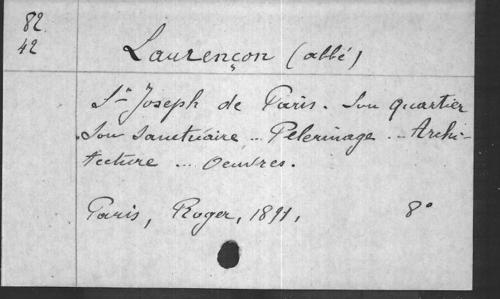 82
42
Laurençon (abbé)
St Joseph de Paris. Son quartier
Son sanctuaire .. Pelerinage .. Archi-
tecture ... Oeuvres.
Paris, Roger, 1891, 8°